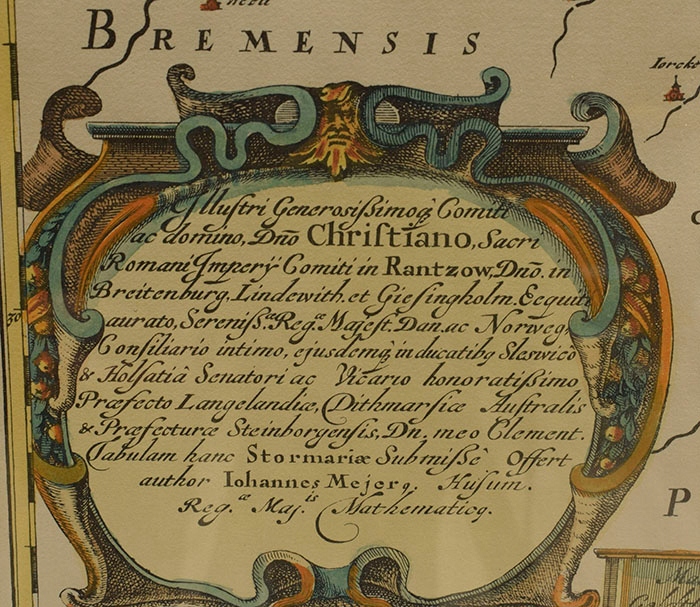 BREMENSIS
Iorcke
Jlluſtri Generoſiſsimoq̃ Comiti
ac domino, Dnõ Chriſtiano, Sacri
Romani Jmperÿ Comiti in Rantzow, Dnõ. in
Breitenburg, Lindewith. et Gieſingholm. Eequiti
aurato, Sereniſs.æ Reg.æ Majeſt.s Dan. ac Norweg.
Conſiliario intimo, ejusdemq̃ in ducatibq Sleswico
& Holſatiâ Senatori ac Vicario honoratiſsimo
Præfecto Langelandiæ, Dithmarſiæ Auſtralis
& Præfecturæ Steinborgenſis, Dn. meo Clement.
Tabulam hanc Stormariæ Submiſsè Offert
author Iohannes Mejerq. Huſum.
Reg.æ Maj.is Mathematicq.
30
P